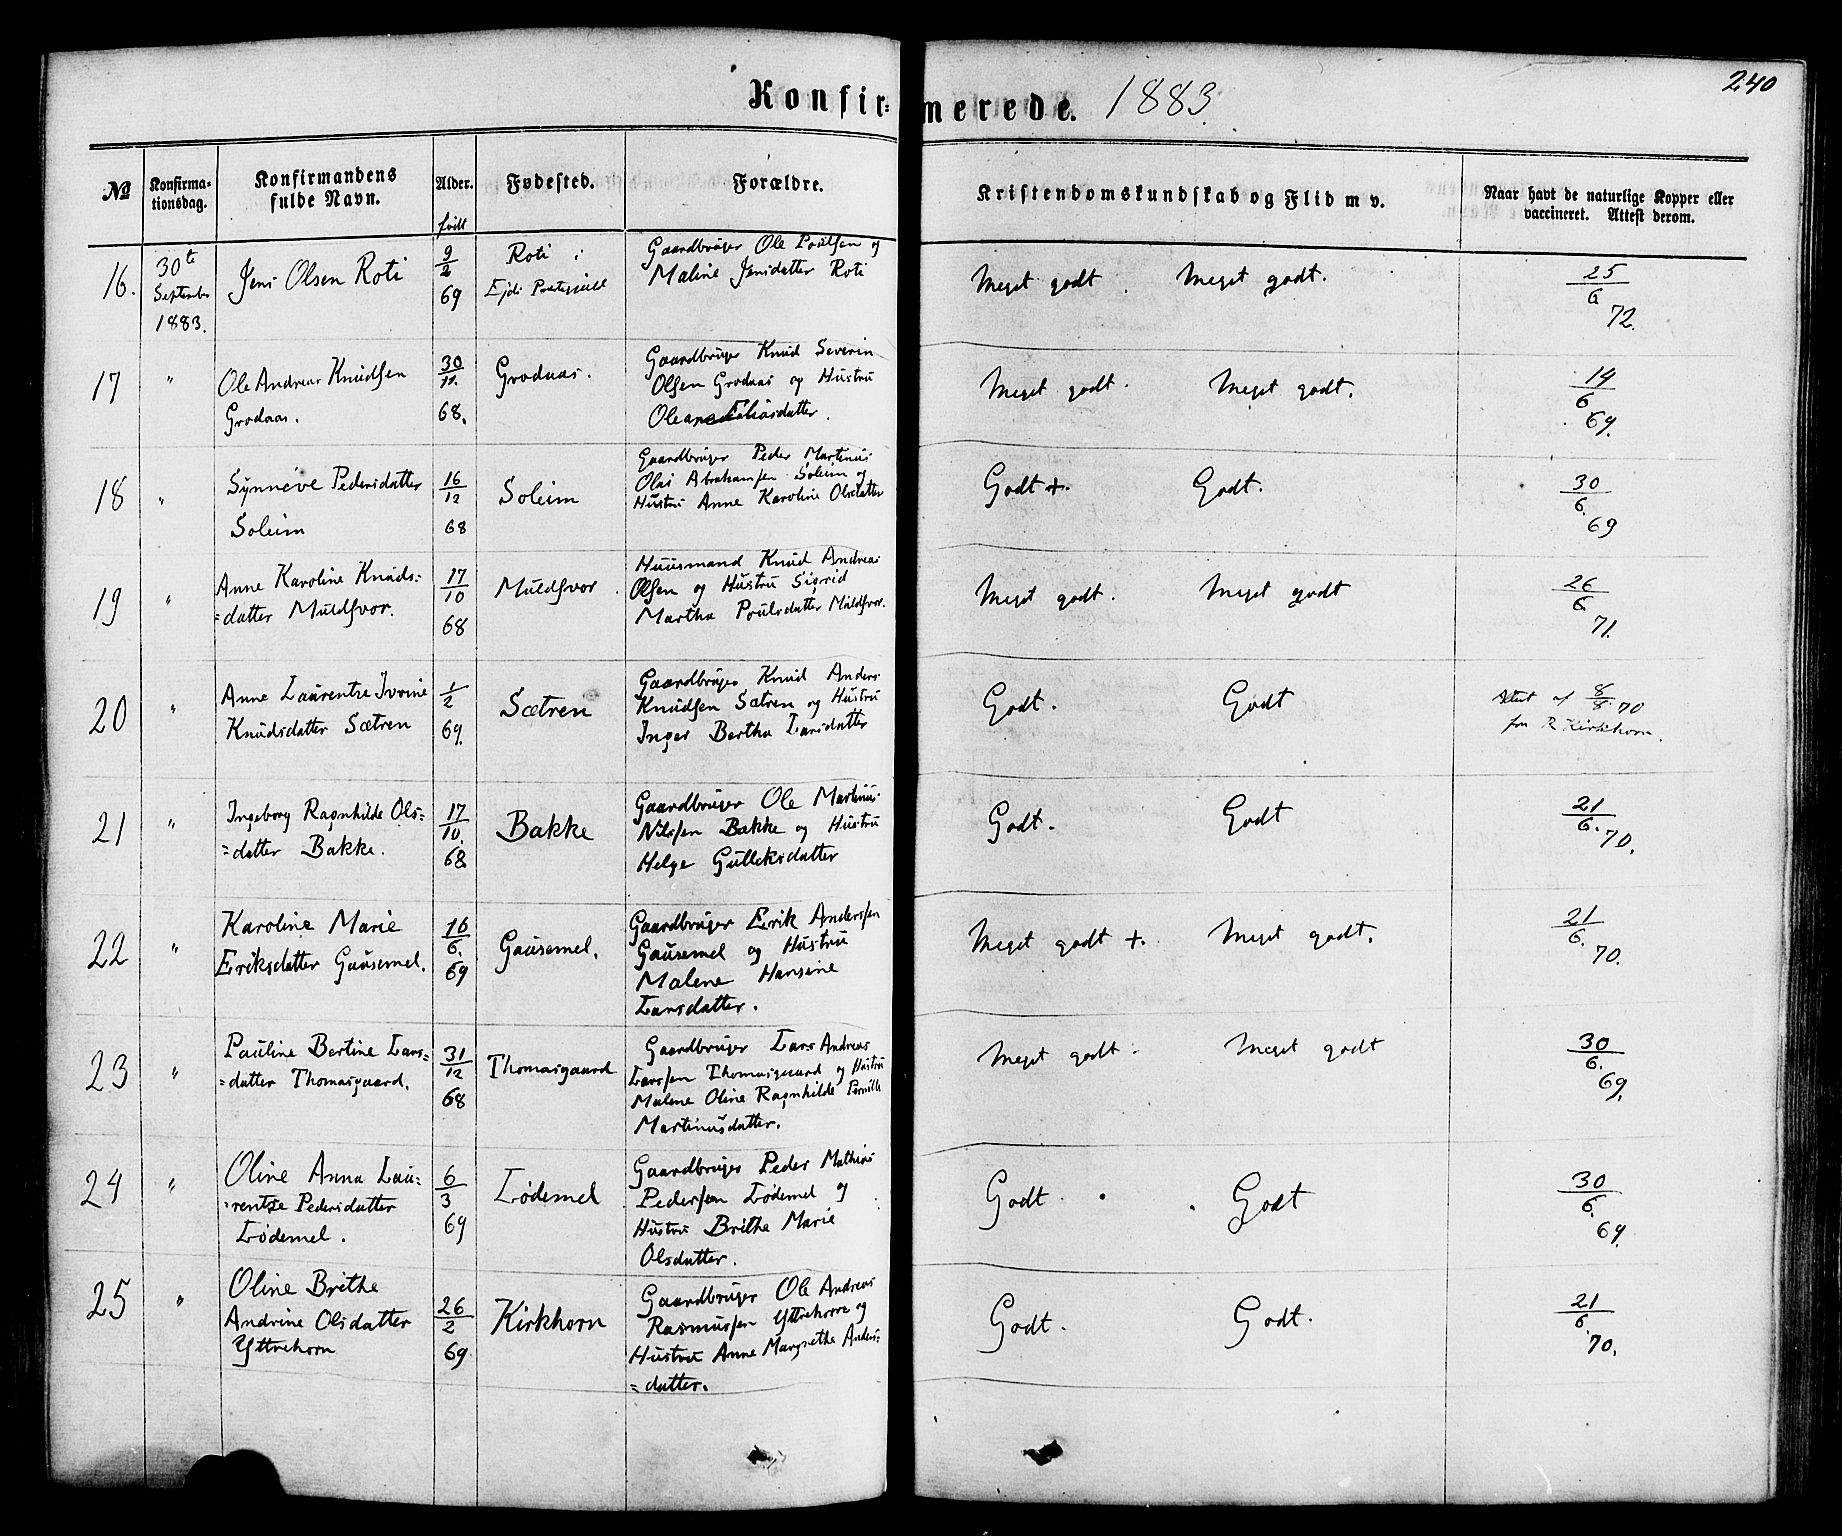 240
Konfirmerede. 1883.
№ Konfirmationsdag. Konfirmandens fulde Navn. Alder. født Fødested. Forældre. Kristendomskundskab og Flid m v. Naar havt de naturlige Kopper eller vaccineret. Attest derom.
16. 30te September 1883. Jens Olsen Roti 9/2 69 Roti i Ejds Præstegjeld
Gaardbruger Ole Poulsen og
Maline Jensdatter Roti
Meget godt. Meget godt. 25/6 72.
17 " Ole Andreas Knudsen
Grodaas. 30/11. 68. Grodaas.
Gaardbruger Knud Severin
Olsen Grodaas og Hustru
Oleane Eliasdatter.
Meget godt. Meget godt. 14/6 69.
18 " Synnéve Pedersdatter
Soleim 16/12 68 Soleim
Gaardbruger Peder Martinus
Olai Abrahamsen Soleim og
Hustru Anne Karoline Olsdatter
Godt +. Godt. 30/6. 69
19 " Anne Karoline Knuds=
=datter Muldsvor. 17/10 68 Muldsvor.
Huusmand Knud Andreas
Olsen og Hustru Sigrid
Martha Poulsdatter Muldsvor.
Meget godt. Meget godt 26/6. 71.
20 " Anne Laurentze Ivrine
Knudsdatter Sætren 1/2 69. Sætren
Gaardbruger Knud Anders
Knudsen Sætren og Hustru
Inger Bertha Larsdatter
Godt. Godt Attest af 8/8 70
fra R Kirkhorn.
21 " Ingeborg Ragnhilde Ols=
=datter Bakke. 17/10. 68 Bakke
Gaardbruger Ole Martinus
Nilssen Bakke og Hustru
Helge Gulleksdatter
Godt. Godt 21/6. 70.
22 " Karoline Marie
Eriksdatter Gausemel. 16/6. 69 Gausemel.
Gaardbruger Erik Anderssen
Gausemel og Hustru
Malene Hansine
Larsdatter.
Meget godt +. Meget godt. 21/6. 70.
23 " Pauline Bertine Lars=
=datter Thomasgaard. 31/12 68 Thomasgaard
Gaardbruger Lars Andreas
Larssen Thomasgaard og Hustru
Malene Oline Ragnhilde Pernille
Martinusdatter.
Meget godt. Meget godt 30/6. 69.
24 " Oline Anna Lau=
=rentze Pedersdatter
Lødemel. 6/3 69 Lødemel
Gaardbruger Peder Mathias
Pederssen Lødemel og
Hustru Brithe Marie
Olsdatter.
Godt. Godt 30/6. 69.
25 " Oline Brithe
Andrine Olsdatter
Yttrehorn 26/2 69 Kirkhorn
Gaardbruger Ole Andreas
Rasmussen Yttrehorn og
Hustru Anne Margrethe Anders=
=datter.
Godt. Godt. 21/6. 70.